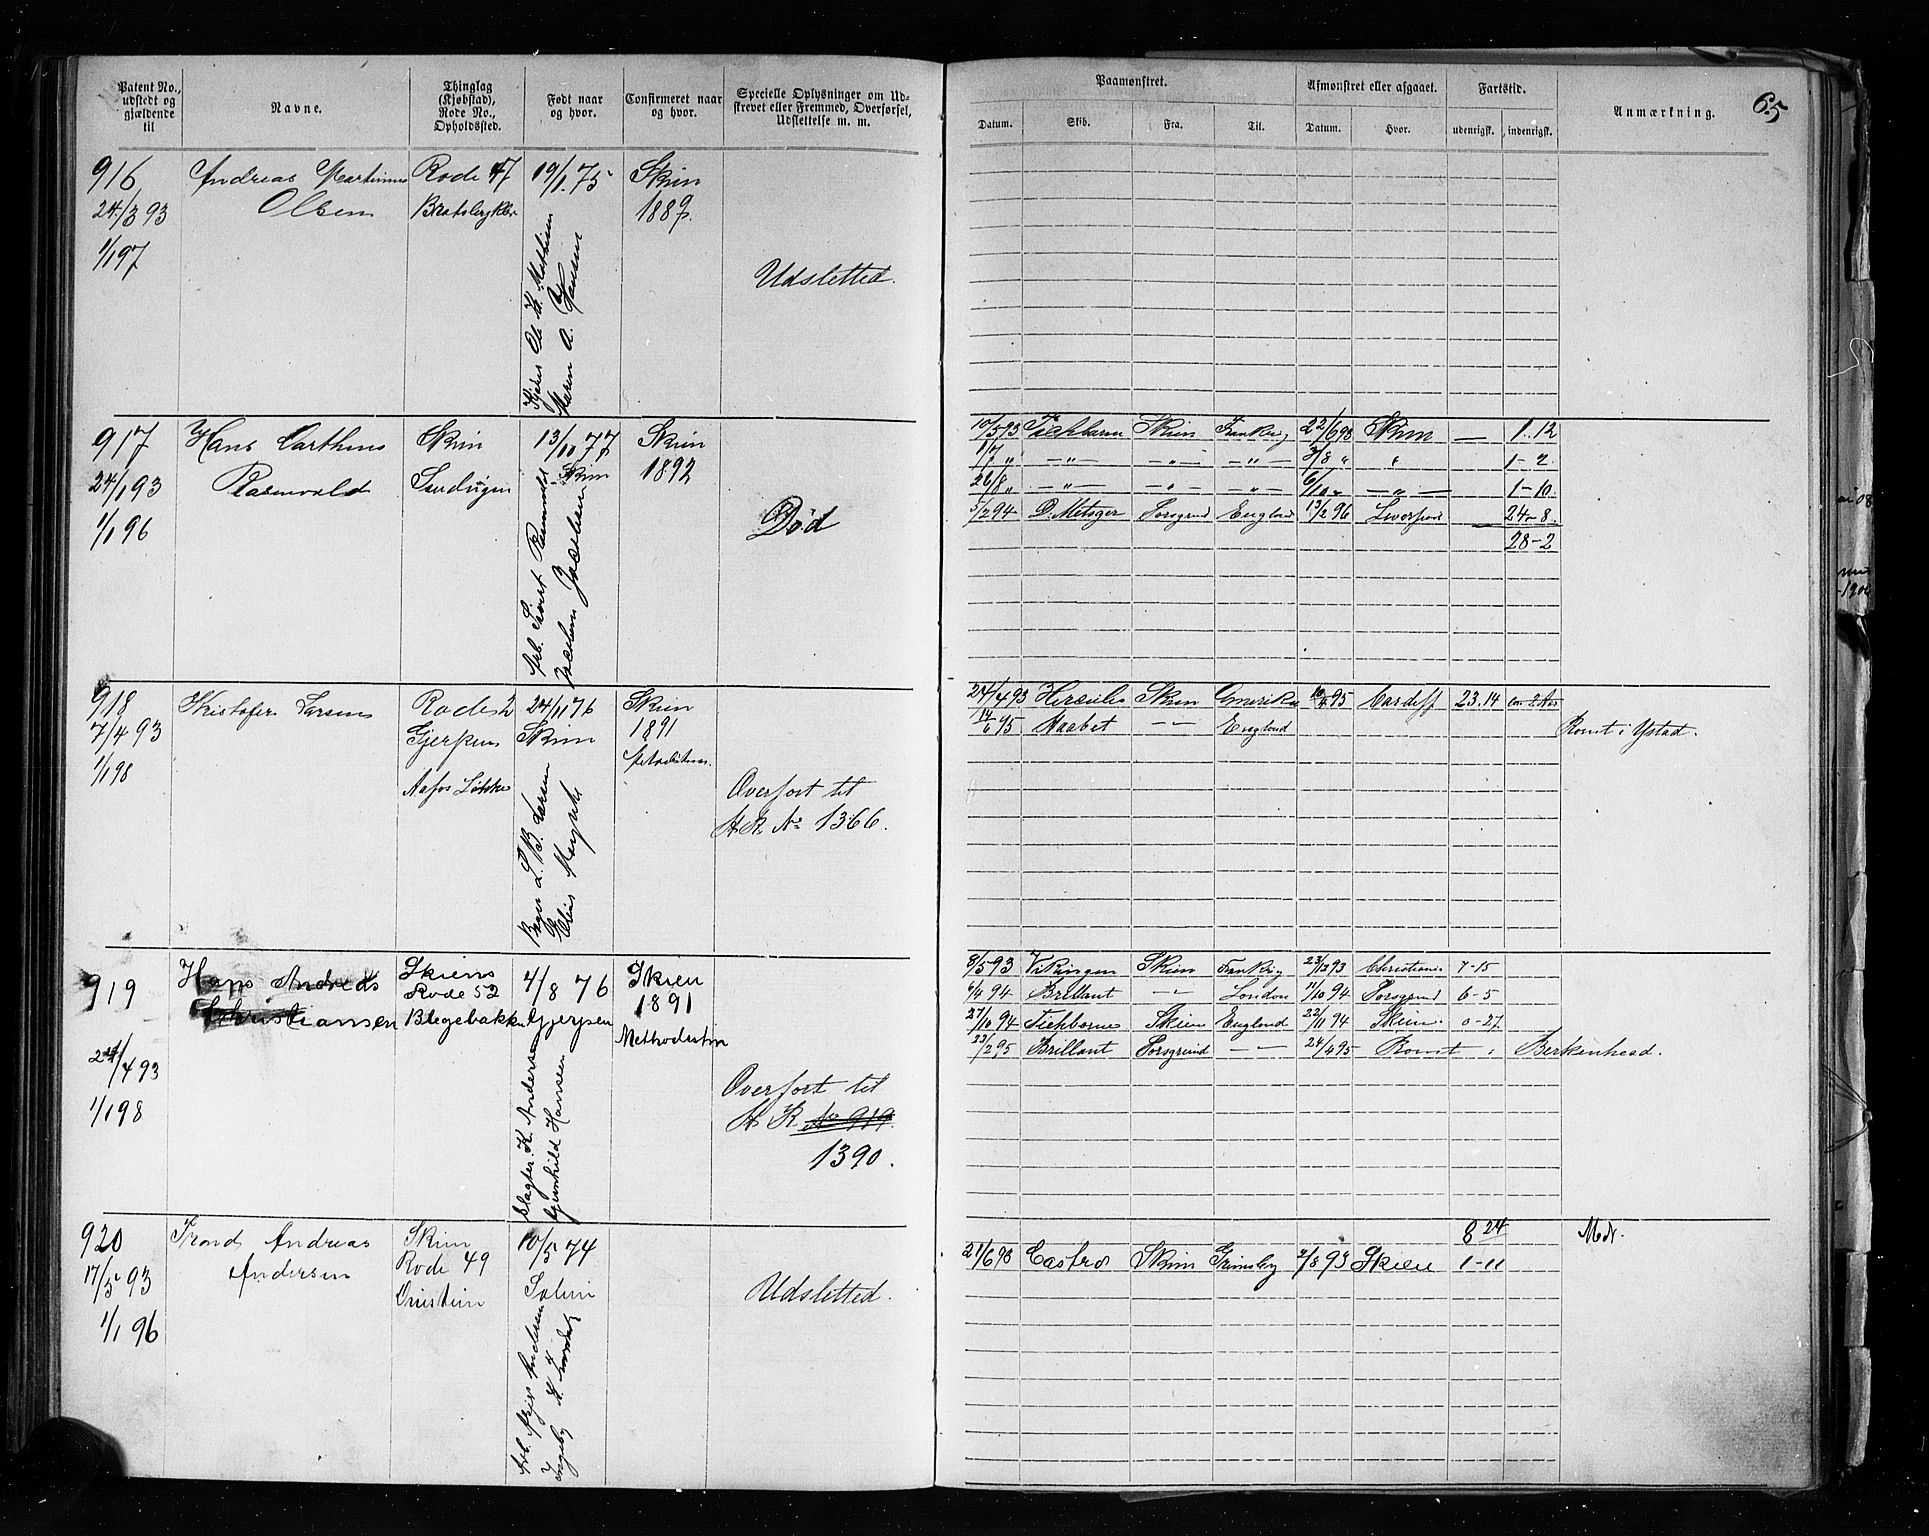 Patent No., udstedt og gjældende til
Navne.
Thinglag (Kjøbstad), Rode No., Opholdssted.
Født naar og hvor.
Confirmeret naar og hvor.
Specielle Oplysninger om Udskrevet eller Fremmed, Overførsel, Udslettelse m. m.
Paamønstret.
Afmønstret eller afgaaet.
Fartstid.
Anmærkning.
65
Datum. Skib. Fra. Til. Datum. Hvor. udenrigsk. indenrigsk.
916 Andreas Martinius Rode 47 19/1 75 Skien
24/3 93 Olsen Bratsbergklev 1889.
1/1 97
Udslettet.
Maren A. Hansen
917 Hans Carthins Skien 13/10 77 Skien
24/1 93 Rasmvald Skien 1892
1/1 96
Død
Arb. Sivert
10/5 93 Tichborne Skien Frankrig 22/6 93 Skien — 1.12
1/7 „ —„— —„— —„— 3/8 „ „ 1-2
26/8 „ —„— —„— —„— 6/10 „ —„— 1-10.
5/2 94 D. Metzger Porsgrund England 13/2 96 Liverpool 24-8.
28-2
918 Kristofer Larsen Rode 2 24/11 76 Skien
7/4 93 Gjerpen Skien 1891
1/1 98 Aafos Løkke Metodistern.
Overført til
H R No 1366.
Bager L. B. Larsen
24/4 93 Hercules Skien Amerika 95 Cardiff 23.14
14/6 95 Haabet —„— England Rømt i Ystad.
919 Hans Andreas Skiens 4/8 76 Skien
Christiansen Rode 52 Gjerpen 1891
Blegebakken Methodistern
24/4 93
1/1 98
Overført til
H R No 919.
1390.
Slagter K. Andersen
Gunhild Hansen
8/5 93 Vikingen Skien Frankrig 23/12 93 Christiania 7-15
6/4 94 Brillant —„— London 11/10 94 Porsgrund 6-5
27/10 94 Tichborne Skien England 22/11 94 Skien 0-27
23/2 95 Brillant Porsgrund — — 24/4 95 Rømt i Birkenhead.
8 24 Mdr.
920 Trond Andreas Skien 10/5 74
17/5 93 Andersen Rode 49 Solum
1/1 96
Udslettet.
21/6 93 Castro Skien Grimsby 2/8 93 Skien 1-11